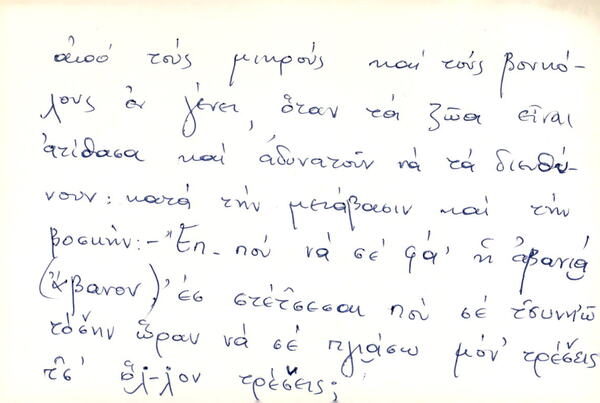 ἀπό τούς μικρούς καί τούς βουκό-
λους ἐν γένει, ὅταν τά ζῶα εἶναι
ἀτίθασα καί ἀδυνατοῦν νά τά διευθύ-
νουν: κατά τήν μετάβασιν καί τήν
βοσκήν:- Ἔπ- πού νά σέ φά' ἡ ἀβανιά
(ἄβανον), ἐς στέτσεσαι πού σέ τσυνηῶ
τόσην ὥραν νά σέ πχιάσω μόν' τρέσεις
τσ' ἄλ-λον τρέσεις;